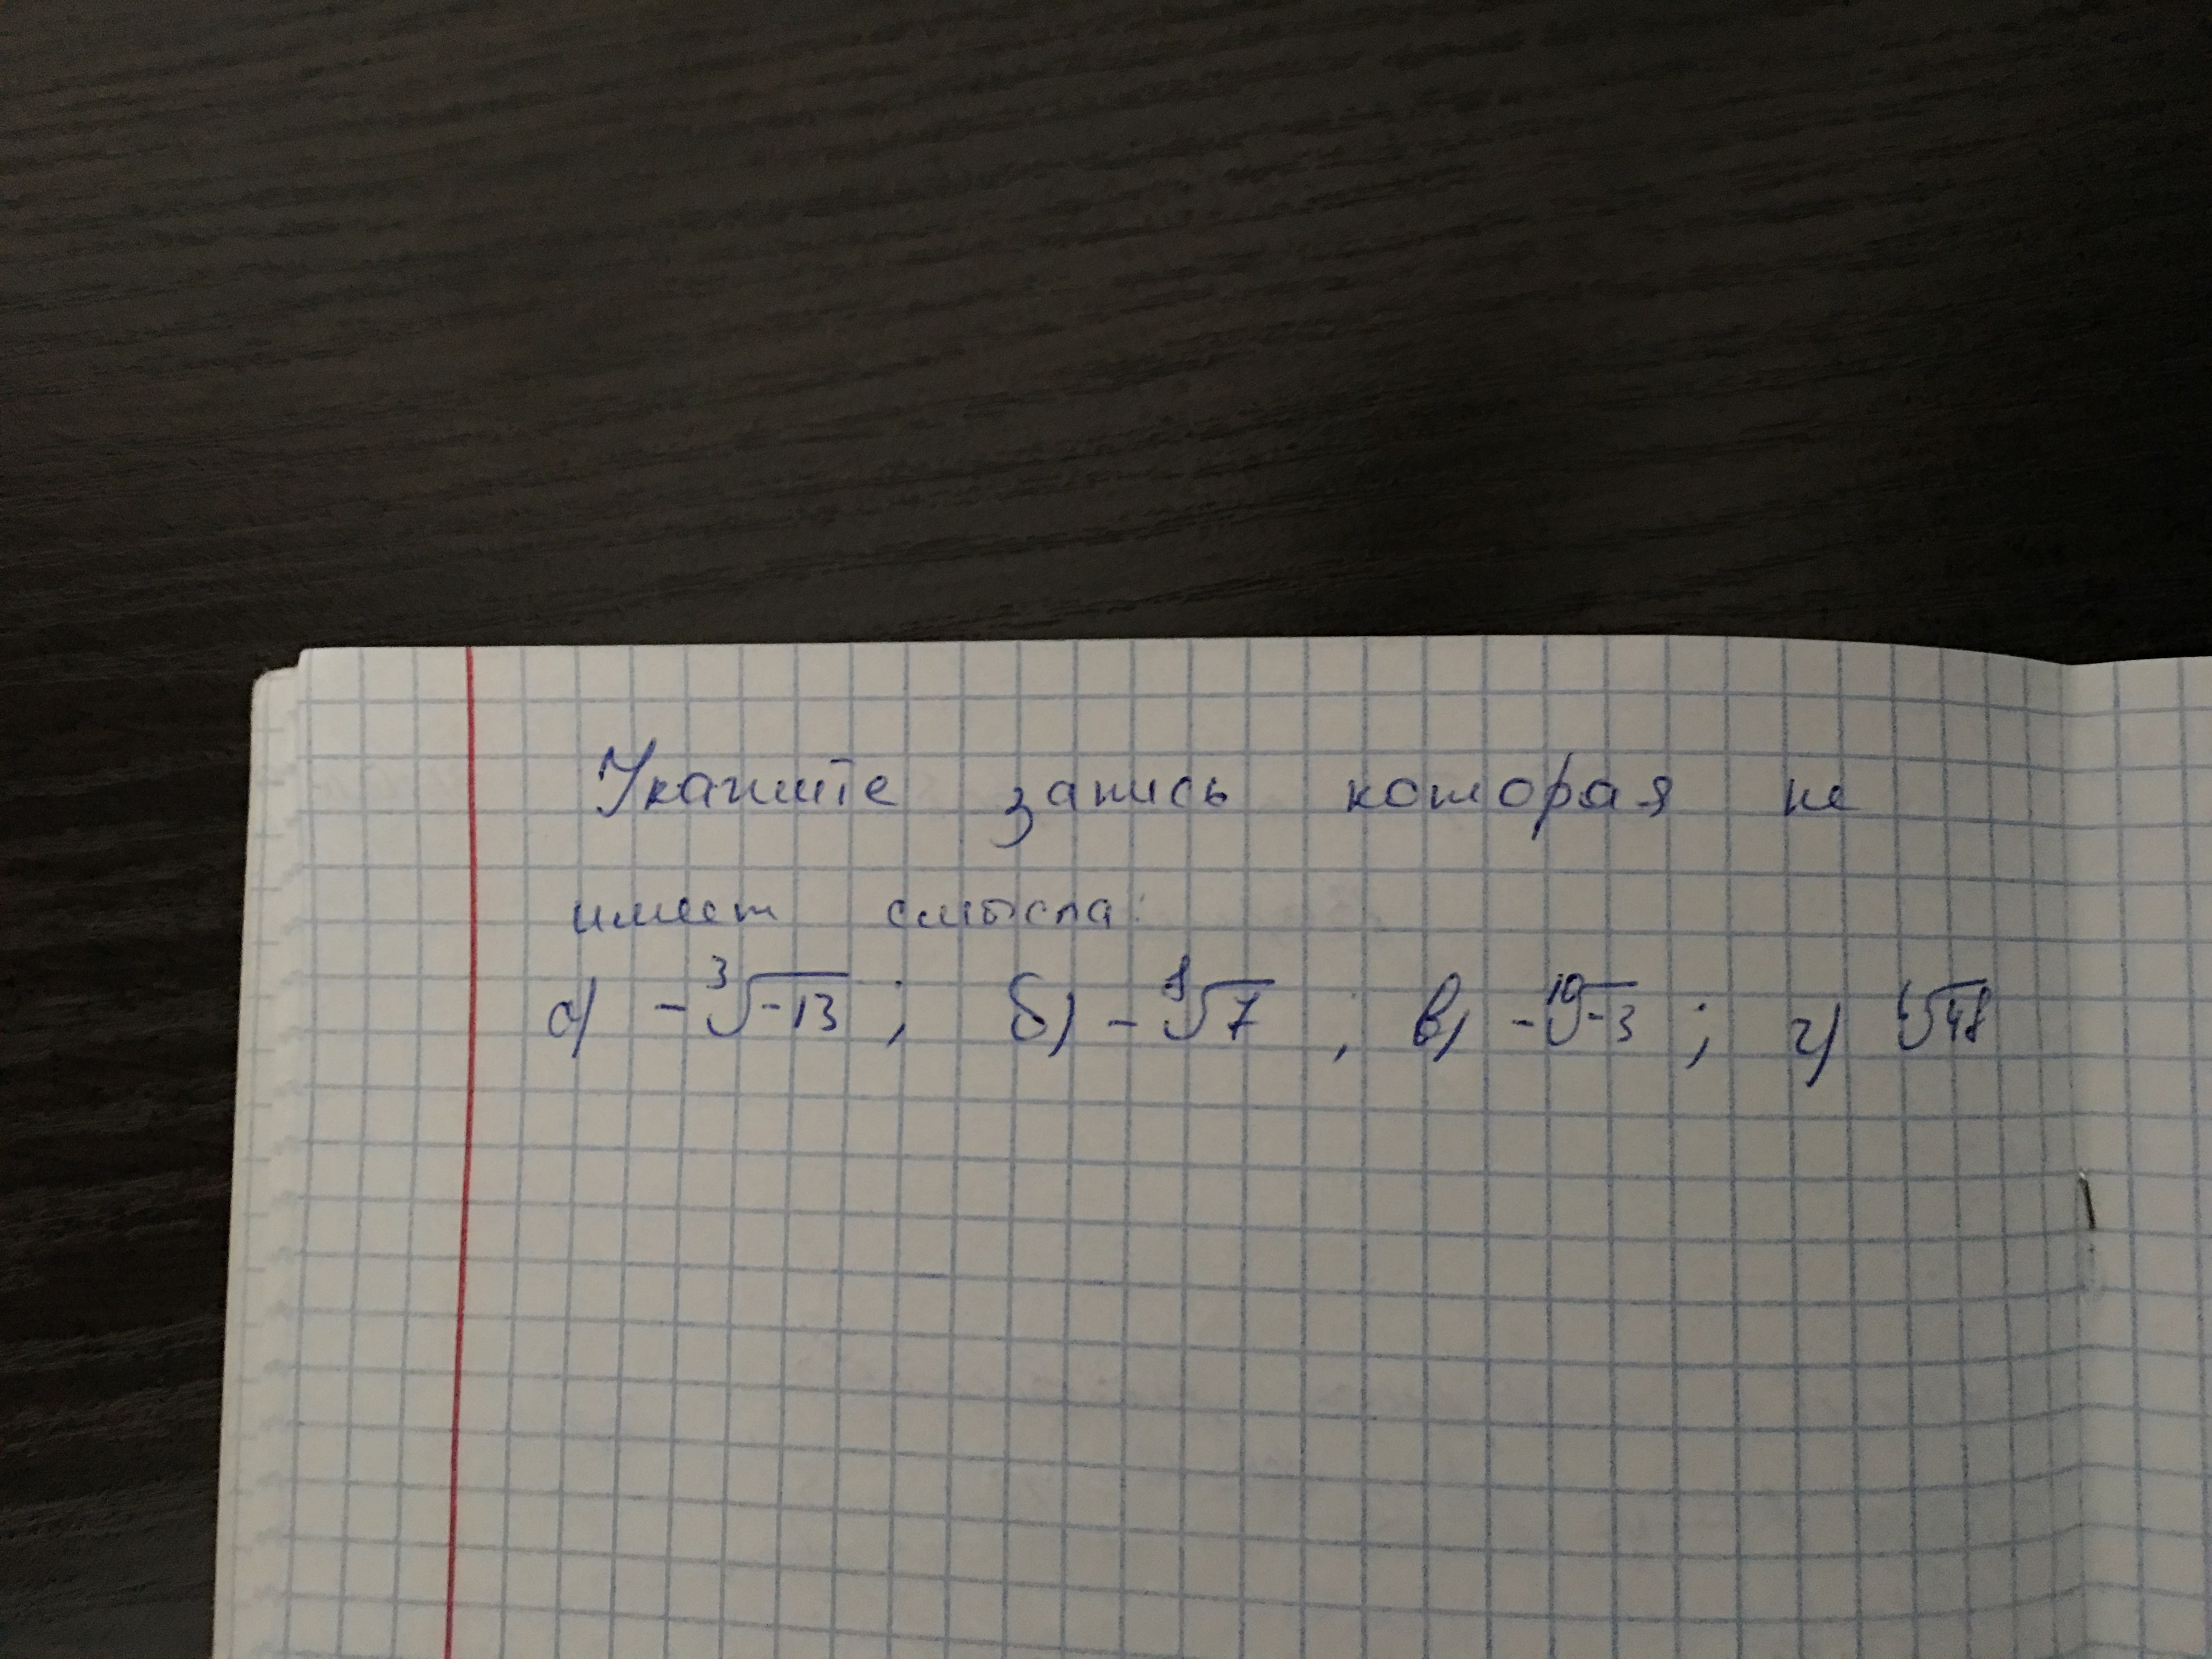 Укажите запись которая не
имеет смысла:
а) -∛-13; б) -⁸√7, в) -¹⁰√-3; г) ⁶√48